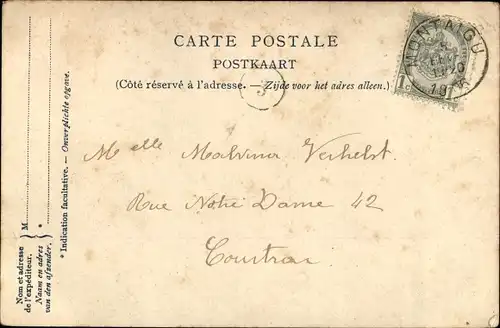 CARTE POSTALE
POSTKAART
(Côté réservé à l'adresse. — Zijde voor het adres alleen.)
MONTAIGU
5
Melle Malvina Verhelst
Rue Notre Dame 42
Courtrai
* Indication facultative. — Onverplichte opgave.
M
*
Nom et adresse
de l'expéditeur.
Naam en adres
van den afzender.